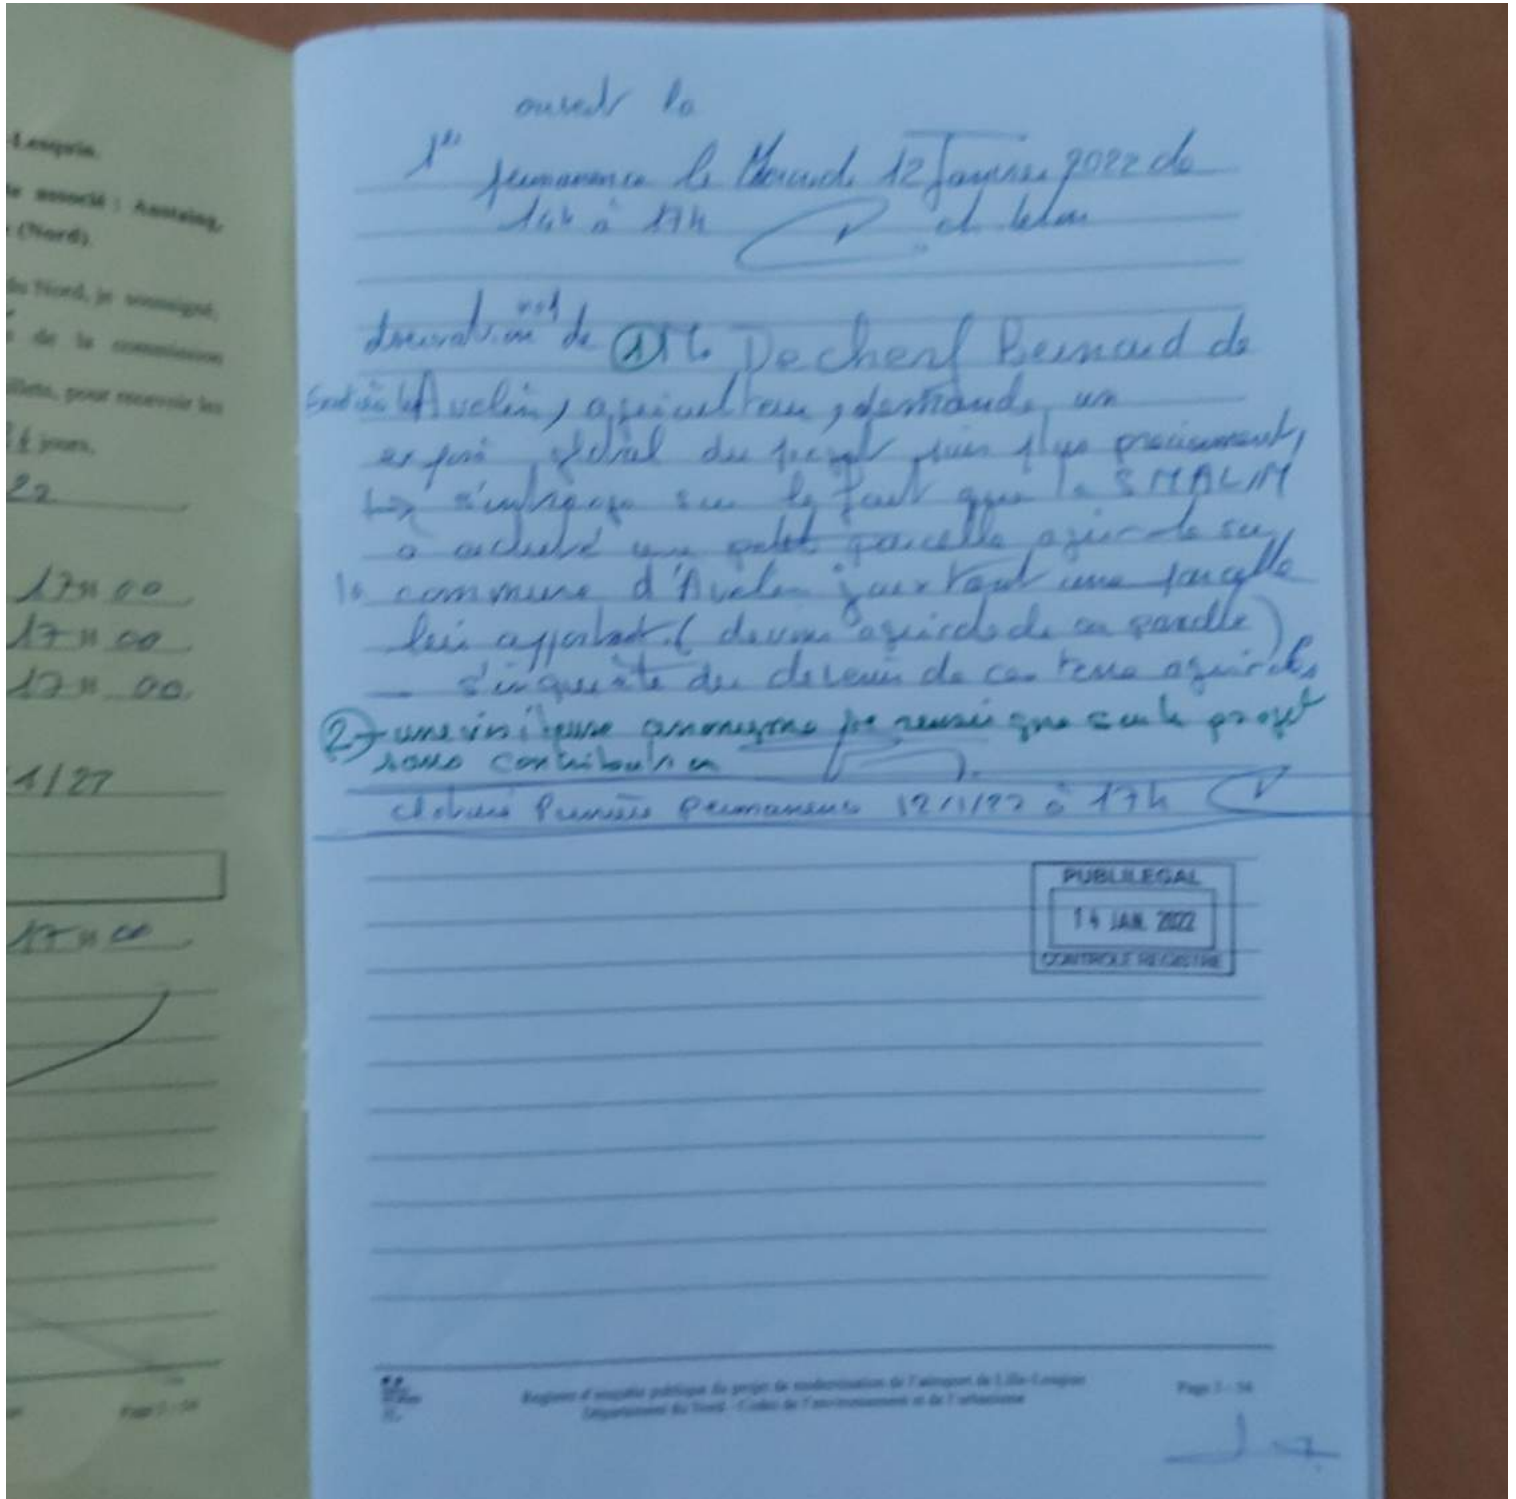 Lesquin.
associé : Annœullin,
(Nord).
du Nord, je soussigné,
de la commission
feuillets, pour recevoir les
jours,
22
17H00
17H00
17H00
1/22
17H00
ouvert la
1ère permanence le Mercredi 12 Janvier 2022 de
14h à 17h
observation de ① M. Decherf Bernard de
Avelin, agriculteur, demande un
exposé global du projet puis plus précisément,
↳ s'interroge sur le fait que le SMALIM
a acheté une petite parcelle agricole sur
la commune d'Avelin jouxtant une parcelle
lui appartenant (devenir agricole de sa parcelle)
— s'inquiète du devenir de ces terres agricoles
② - une visiteuse anonyme se renseigne sur le projet
sans contribution
clôture Première Permanence 12/1/22 à 17h
PUBLILEGAL
14 JAN. 2022
CONTROLE REGISTRE
Registre d'enquête publique du projet de modernisation de l'aéroport de Lille-Lesquin
Département du Nord - Codes de l'environnement et de l'urbanisme